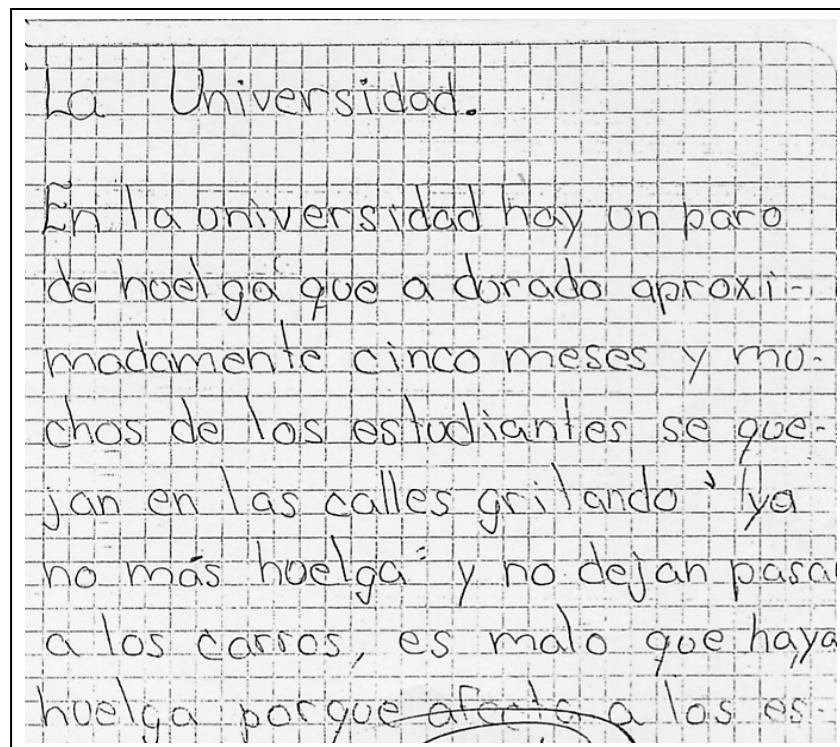 La Universidad.
En la universidad hay un paro
de huelga que a durado aproxi-
madamente cinco meses y mu-
chos de los estudiantes se que-
jan en las calles gritando "ya
no más huelga" y no dejan pasar
a los carros, es malo que haya
huelga porque afecta a los es-